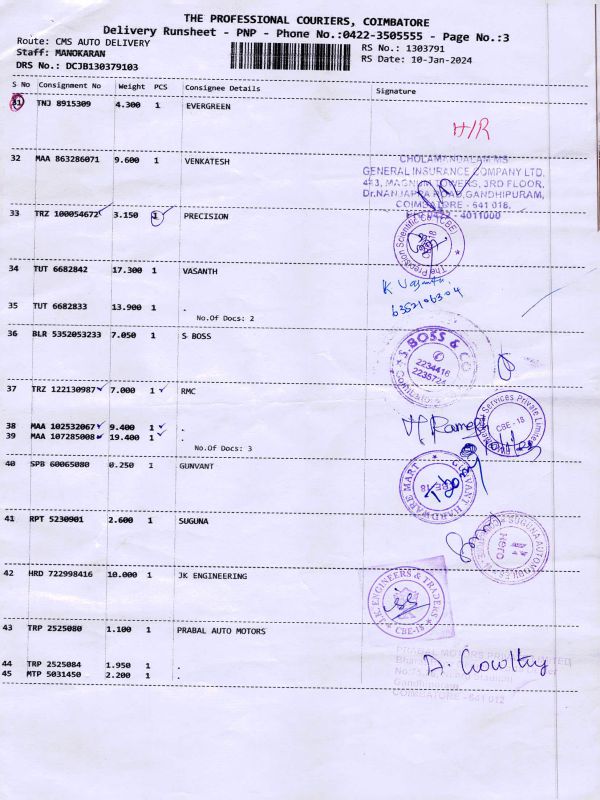 THE PROFESSIONAL COURIERS, COIMBATORE
Delivery Runsheet - PNP - Phone No.:0422-3505555 - Page No.:3
Route: CMS AUTO DELIVERY
RS No.: 1303791
Staff: MANOKARAN
RS Date: 10-Jan-2024
DRS No.: DCJB130379103
S No Consignment No Weight PCS Consignee Details Signature
31 TNJ 8915309 4.300 1 EVERGREEN
H/R
32 MAA 863286071 9.600 1 VENKATESH
CHOLAMANDALAM MS
GENERAL INSURANCE COMPANY LTD,
4#3, MAGNUM TOWERS, 3RD FLOOR,
Dr.NANJAPPA ROAD, GANDHIPURAM,
COIMBATORE - 641 018,
PH: 0422 - 4011000
33 TRZ 100054672 3.150 1 PRECISION
The Precision Scientific Co (CBE)
34 TUT 6682842 17.300 1 VASANTH
K Vasanth
6352106304
35 TUT 6682833 13.900 1 .
No.Of Docs: 2
36 BLR 5352053233 7.050 1 S BOSS
S. BOSS & CO
2234416
2235724
Coimbatore
37 TRZ 122130987 7.000 1 RMC
Services Private Limited
CBE - 18
38 MAA 102532067 9.400 1 .
39 MAA 107285008 19.400 1 .
No.Of Docs: 3
40 SPB 60065080 0.250 1 GUNVANT
GUNVANT HARDWARE MART
CBE-18
41 RPT 5230901 2.600 1 SUGUNA
SUGUNA AUTOMOBILES
Hero
42 HRD 722998416 10.000 1 JK ENGINEERING
ENGINEERS & TRADERS
CBE-18
43 TRP 2525080 1.100 1 PRABAL AUTO MOTORS
PRABAL MOTORS PRIVATE LIMITED
44 TRP 2525084 1.950 1 .
A. Chowthry
45 MTP 5031450 2.200 1 .
Gandhipuram
COIMBATORE - 641 012